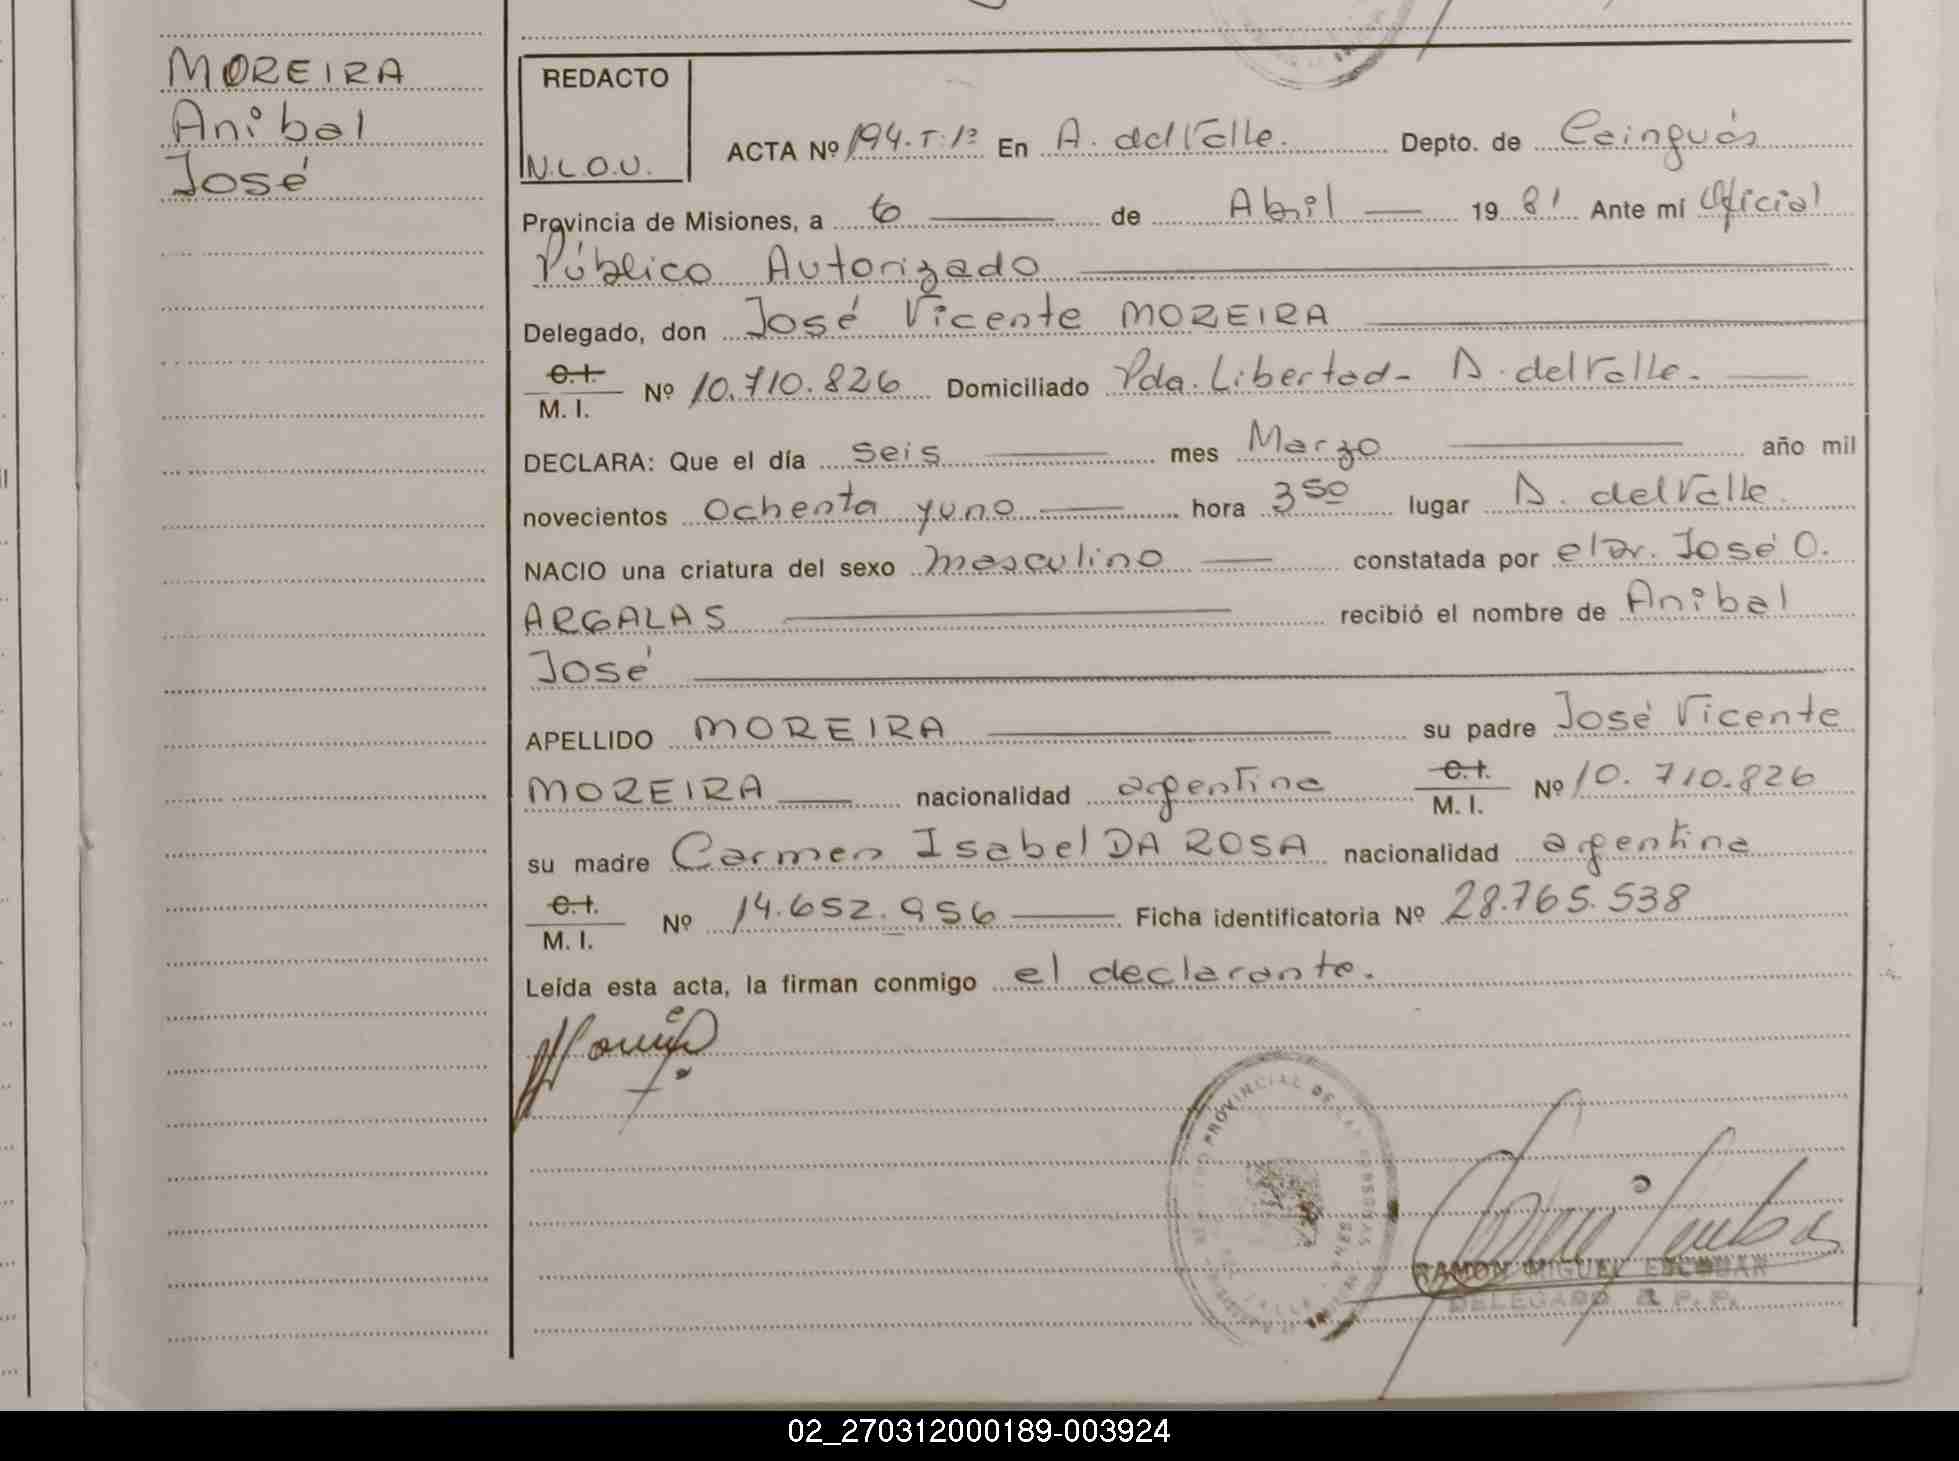 MOREIRA
Anibal
José
REDACTO
N.L.O.U.
ACTA Nº 194.T.1º En A. del Valle. Depto. de Cainguás
Provincia de Misiones, a 6 de Abril 1981 Ante mí Oficial
Público Autorizado
Delegado, don José Vicente MOREIRA
C.I.
M. I. Nº 10.710.826 Domiciliado Pda. Libertad - A. del Valle.
DECLARA: Que el día seis mes Marzo año mil
novecientos ochenta y uno hora 3 50 lugar A. del Valle.
NACIO una criatura del sexo masculino constatada por el Dr. José O.
ARGALAS recibió el nombre de Anibal
José
APELLIDO MOREIRA su padre José Vicente
MOREIRA nacionalidad argentina C.I. M. I. Nº 10.710.826
su madre Carmen Isabel DA ROSA nacionalidad argentina
C.I.
M. I. Nº 14.652.956 Ficha identificatoria Nº 28.765.538
Leída esta acta, la firman conmigo el declarante.
PROVINCIAL DE LAS PERSONAS
RAMON MIGUEL ESCOBAR
DELEGADO R.P.P.
02_270312000189-003924